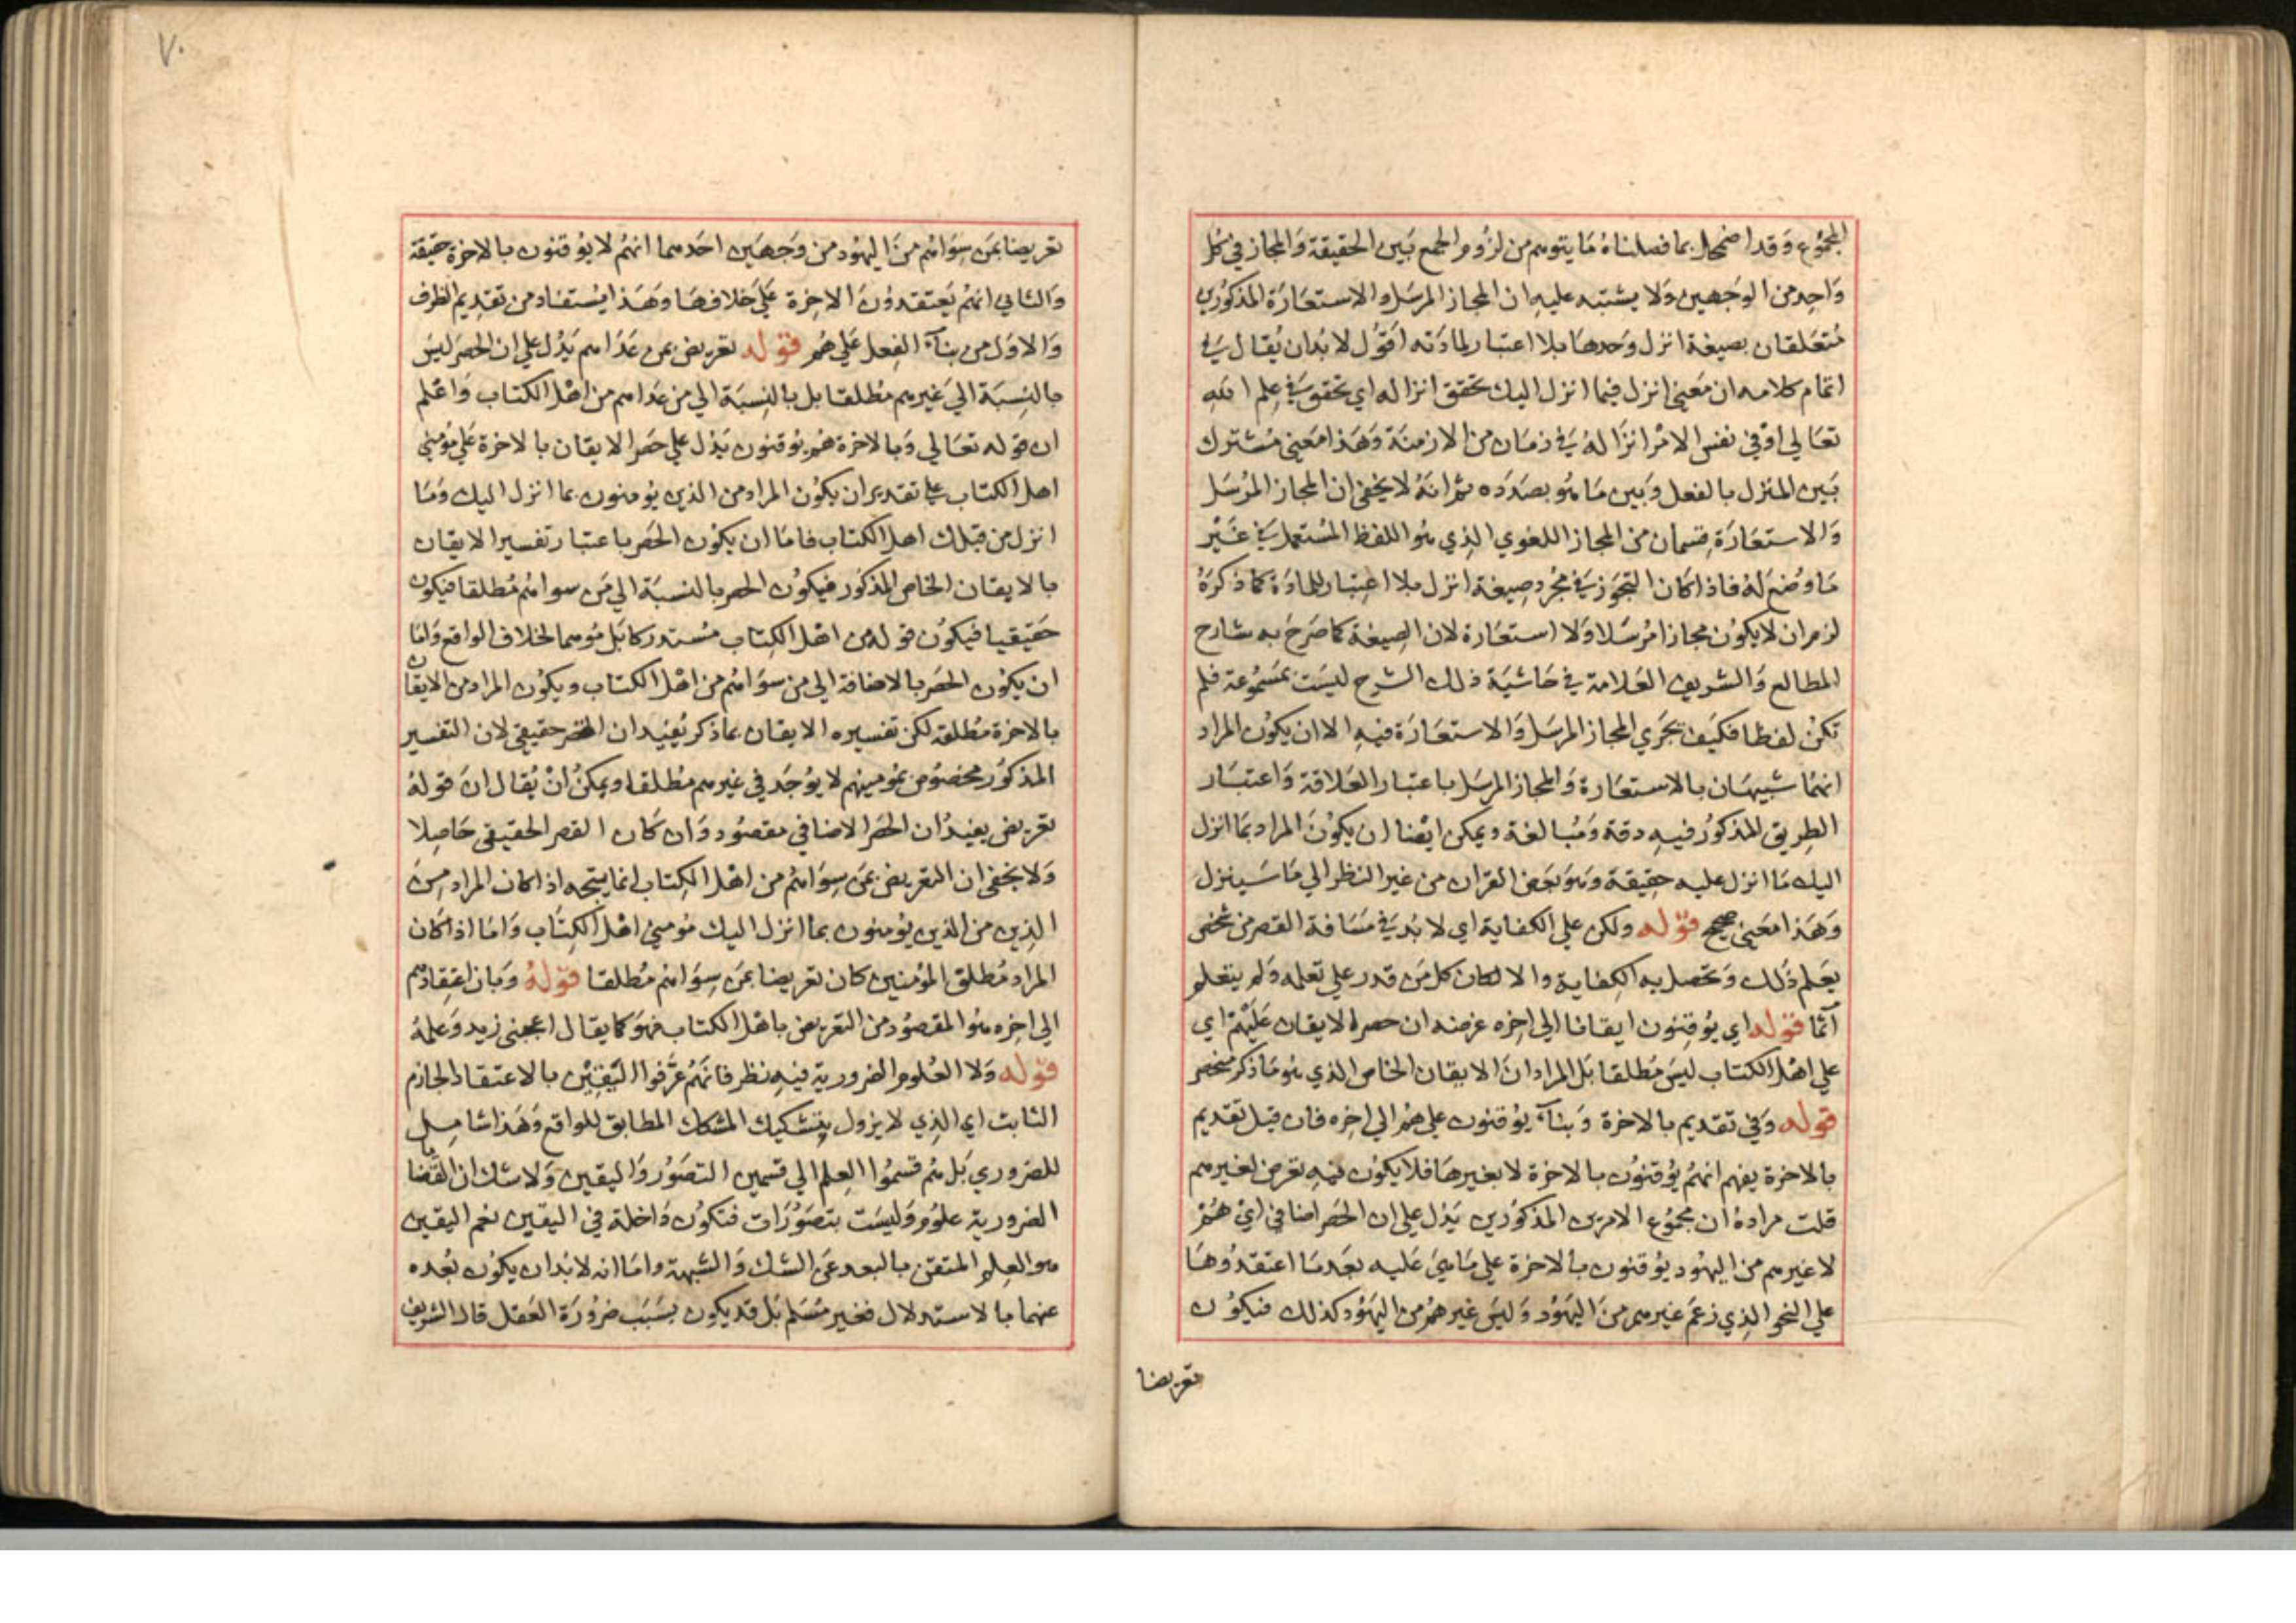 المجموع وقد اضمحل بما فصلناه ما يتوهم من لزوم الجمع بين الحقيقة والمجاز في كل
واحد من الوجهين ولا يشتبه عليه ان المجاز المرسل والاستعارة المذكورين
متعلقان بصيغة انزل وحدها بلا اعتبار لمادته اقول لا بد ان يقال في
اتمام كلامه ان معنى انزل فيما انزل اليك تحقق انزاله اي تحقق في علم الله
تعالي او في نفس الامر انزاله في زمان من الازمنة وهذا معني مشترك
بين المنزل بالفعل وبين ما هو بصدده ثم انه لا يخفى ان المجاز المرسل
والاستعارة قسمان من المجاز اللغوي الذي هو اللفظ المستعمل في غير
ما وضع له فاذا كان التجوز في مجرد صيغة انزل بلا اعتبار للمادة كما ذكره
لزم ان لا يكون مجازا مرسلا ولا استعارة لان الصيغة كما صرح به شارح
المطالع والشريف العلامة في حاشية ذلك الشرح ليست بمسموعة فلم
تكن لفظا فكيف يجري المجاز المرسل والاستعارة فيه الا ان يكون المراد
انهما شبيهان بالاستعارة والمجاز المرسل باعتبار العلاقة واعتبار
الطريق المذكور فيه دقة ومبالغة ويمكن ايضا ان يكون المراد بما انزل
اليك ما انزل عليه حقيقة وهو بعض القران من غير النظر الي ما سينزل
وهذا معني صحيح قوله ولكن علي الكفاية اي لا بد في مسافة القصر من شخص
يعلم ذلك وتحصل به الكفاية والا لكان كل من قدر علي تعلمه ولم يتعلم
آثما قوله اي يوقنون ايقانا الي اخره غرضه ان حصر الايقان عليهم اي
علي اهل الكتاب ليس مطلقا بل المراد ان الايقان الخاص الذي هو ما ذكر منحصر
قوله وفي تقديم بالاخرة وبناء يوقنون علي هم الي اخره فان قيل تقديم
بالاخرة يفهم انهم يوقنون بالاخرة لا بغيرها فلا يكون فيه تعرض لغيرهم
قلت مراده ان مجموع الامرين المذكورين يدل علي ان الحصر اضافي اي هم
لا غيرهم من اليهود يوقنون بالاخرة علي ما هي عليه بعد ما اعتقدوها
علي النحو الذي زعم غيرهم من اليهود وليس غيرهم من اليهود كذلك فيكون
تعريضا
٧٠
تعريضا بمن سواهم من اليهود من وجهين احدهما انهم لا يوقنون بالاخرة حقيقة
والثاني انهم يعتقدون الاخرة علي خلافها وهذا يستفاد من تقديم الظرف
والاول من بناء الفعل علي هم قوله تعريض بمن عداهم يدل علي ان الحصر ليس
بالنسبة الي غيرهم مطلقا بل بالنسبة الي من عداهم من اهل الكتاب واعلم
ان قوله تعالي وبالاخرة هم يوقنون يدل علي حصر الايقان بالاخرة علي مؤمني
اهل الكتاب علي تقدير ان يكون المراد من الذين يؤمنون بما انزل اليك وما
انزل من قبلك اهل الكتاب فاما ان يكون الحصر باعتبار تفسير الايقان
بالايقان الخاص المذكور فيكون الحصر بالنسبة الي من سواهم مطلقا فيكون
حقيقيا فيكون قوله من اهل الكتاب مستدركا بل موهما لخلاف الواقع واما
ان يكون الحصر بالاضافة الي من سواهم من اهل الكتاب ويكون المراد من الايقان
بالاخرة مطلقه لكن تفسيره الايقان بما ذكر يفيد ان الحصر حقيقي لان التفسير
المذكور مخصوص بمؤمنيهم لا يوجد في غيرهم مطلقا ويمكن ان يقال ان قوله
تعريض يفيد ان الحصر الاضافي مقصود وان كان القصر الحقيقي حاصلا
ولا يخفى ان التعريض بمن سواهم من اهل الكتاب انما يتجه اذا كان المراد من
الذين من الذين يؤمنون بما انزل اليك مؤمني اهل الكتاب واما اذا كان
المراد مطلق المؤمنين كان تعريضا بمن سواهم مطلقا قوله وبان اعتقادهم
الي اخره هو المقصود من التعريض باهل الكتاب فهو كما يقال اعجبني زيد وعلمه
قوله ولا العلوم الضرورية فيه نظر فانهم عرفوا اليقين بالاعتقاد الجازم
الثابت اي الذي لا يزول بتشكيك المشكك المطابق للواقع وهذا شامل
للضروري بل هم قسموا العلم الي قسمين التصور واليقين ولا شك ان القضايا
الضرورية علوم وليست بتصورات فتكون داخلة في اليقين نعم اليقين
هو العلم المتقن بالبعد عن الشك والشبهة واما انه لا بد ان يكون بعده
عنهما بالاستدلال فغير مسلم بل قد يكون بسبب ضرورة العقل قال الشريف